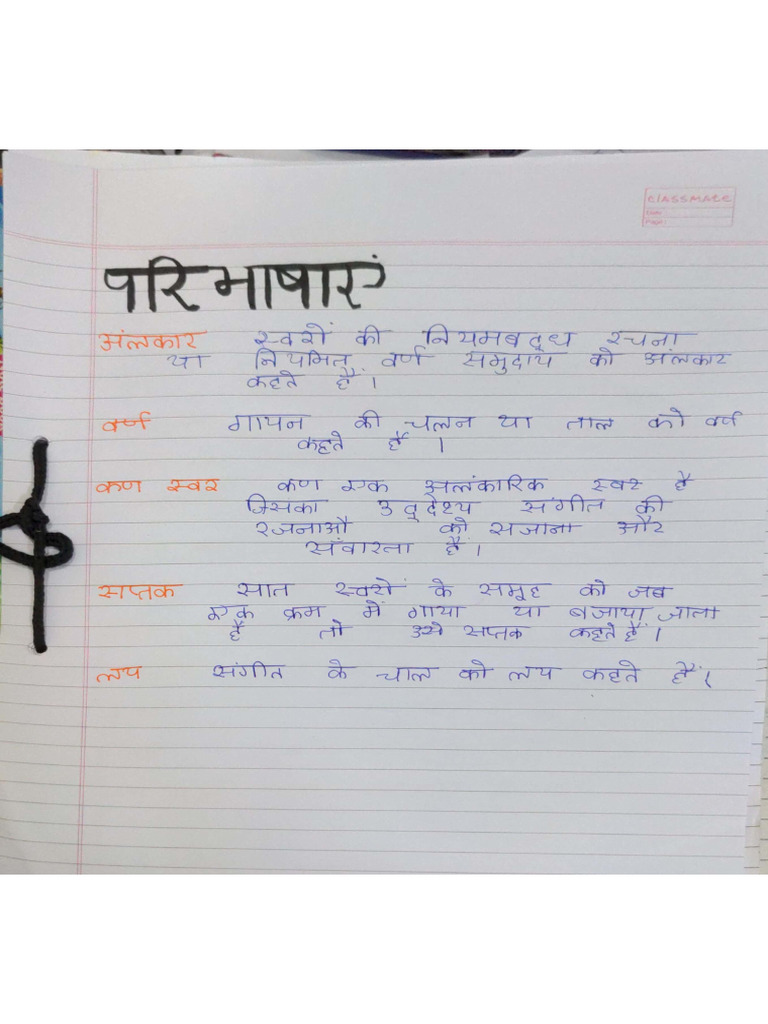 CLASSMATE
Date
Page
परिभाषाएं
अंलकार स्वरों की नियमबद्ध रचना
या नियमित वर्ण समुदाय को अंलकार
कहते हैं।
वर्ण गायन की चलन या ताल को वर्ण
कहते हैं।
कण स्वर कण एक अलंकारिक स्वर है
जिसका उद्देश्य संगीत की
रजनाऔ को सजाना और
संवारना है।
सप्तक सात स्वरों के समूह को जब
एक क्रम में गाया या बजाया जाता
है तो उसे सप्तक कहते हैं।
लय संगीत के चाल को लय कहते हैं।